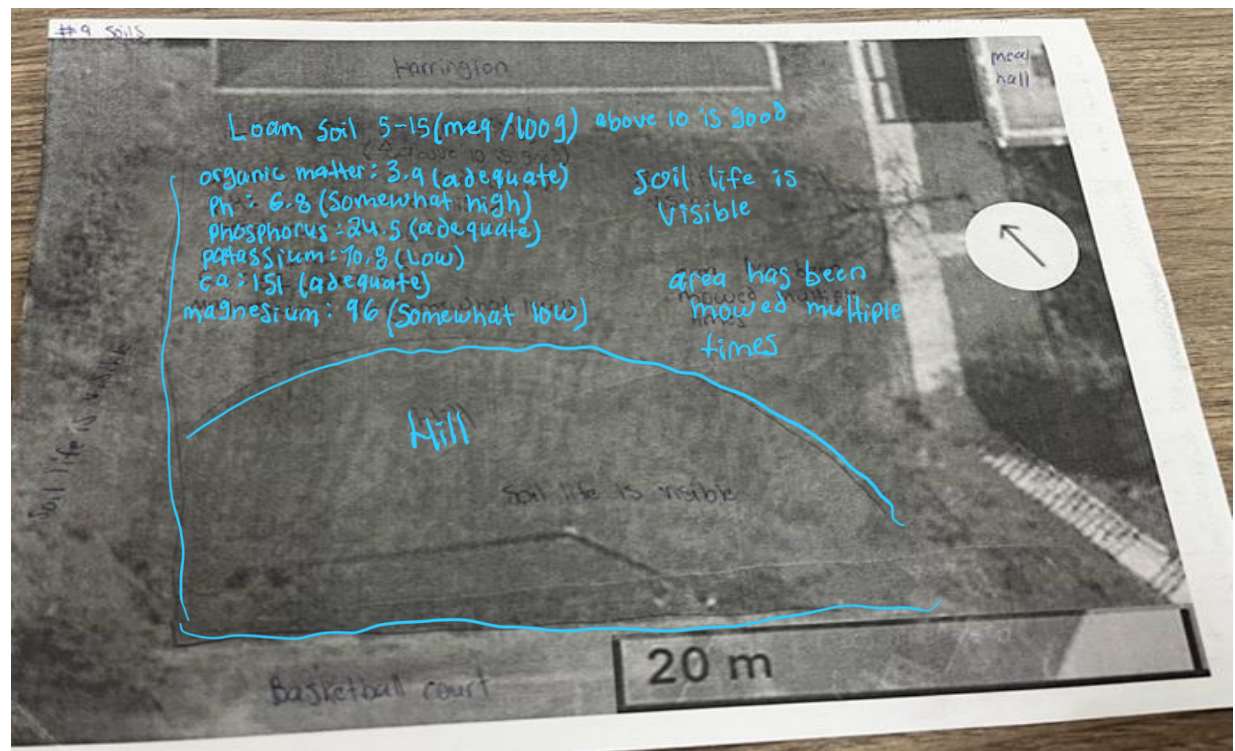 #9 soils
Harrington
meal
hall
Loam Soil 5-15(meq/100g) above 10 is good
organic matter: 3.9 (adequate)
Ph: 6.8 (somewhat high)
phosphorus: 24.5 (adequate)
patassium: 70.8 (Low)
ca: 151 (adequate)
magnesium: 96 (somewhat low)
soil life is
visible
area has been
mowed multiple
times
Soil life is visible
Hill
Soil life is visible
20 m
Basketball court